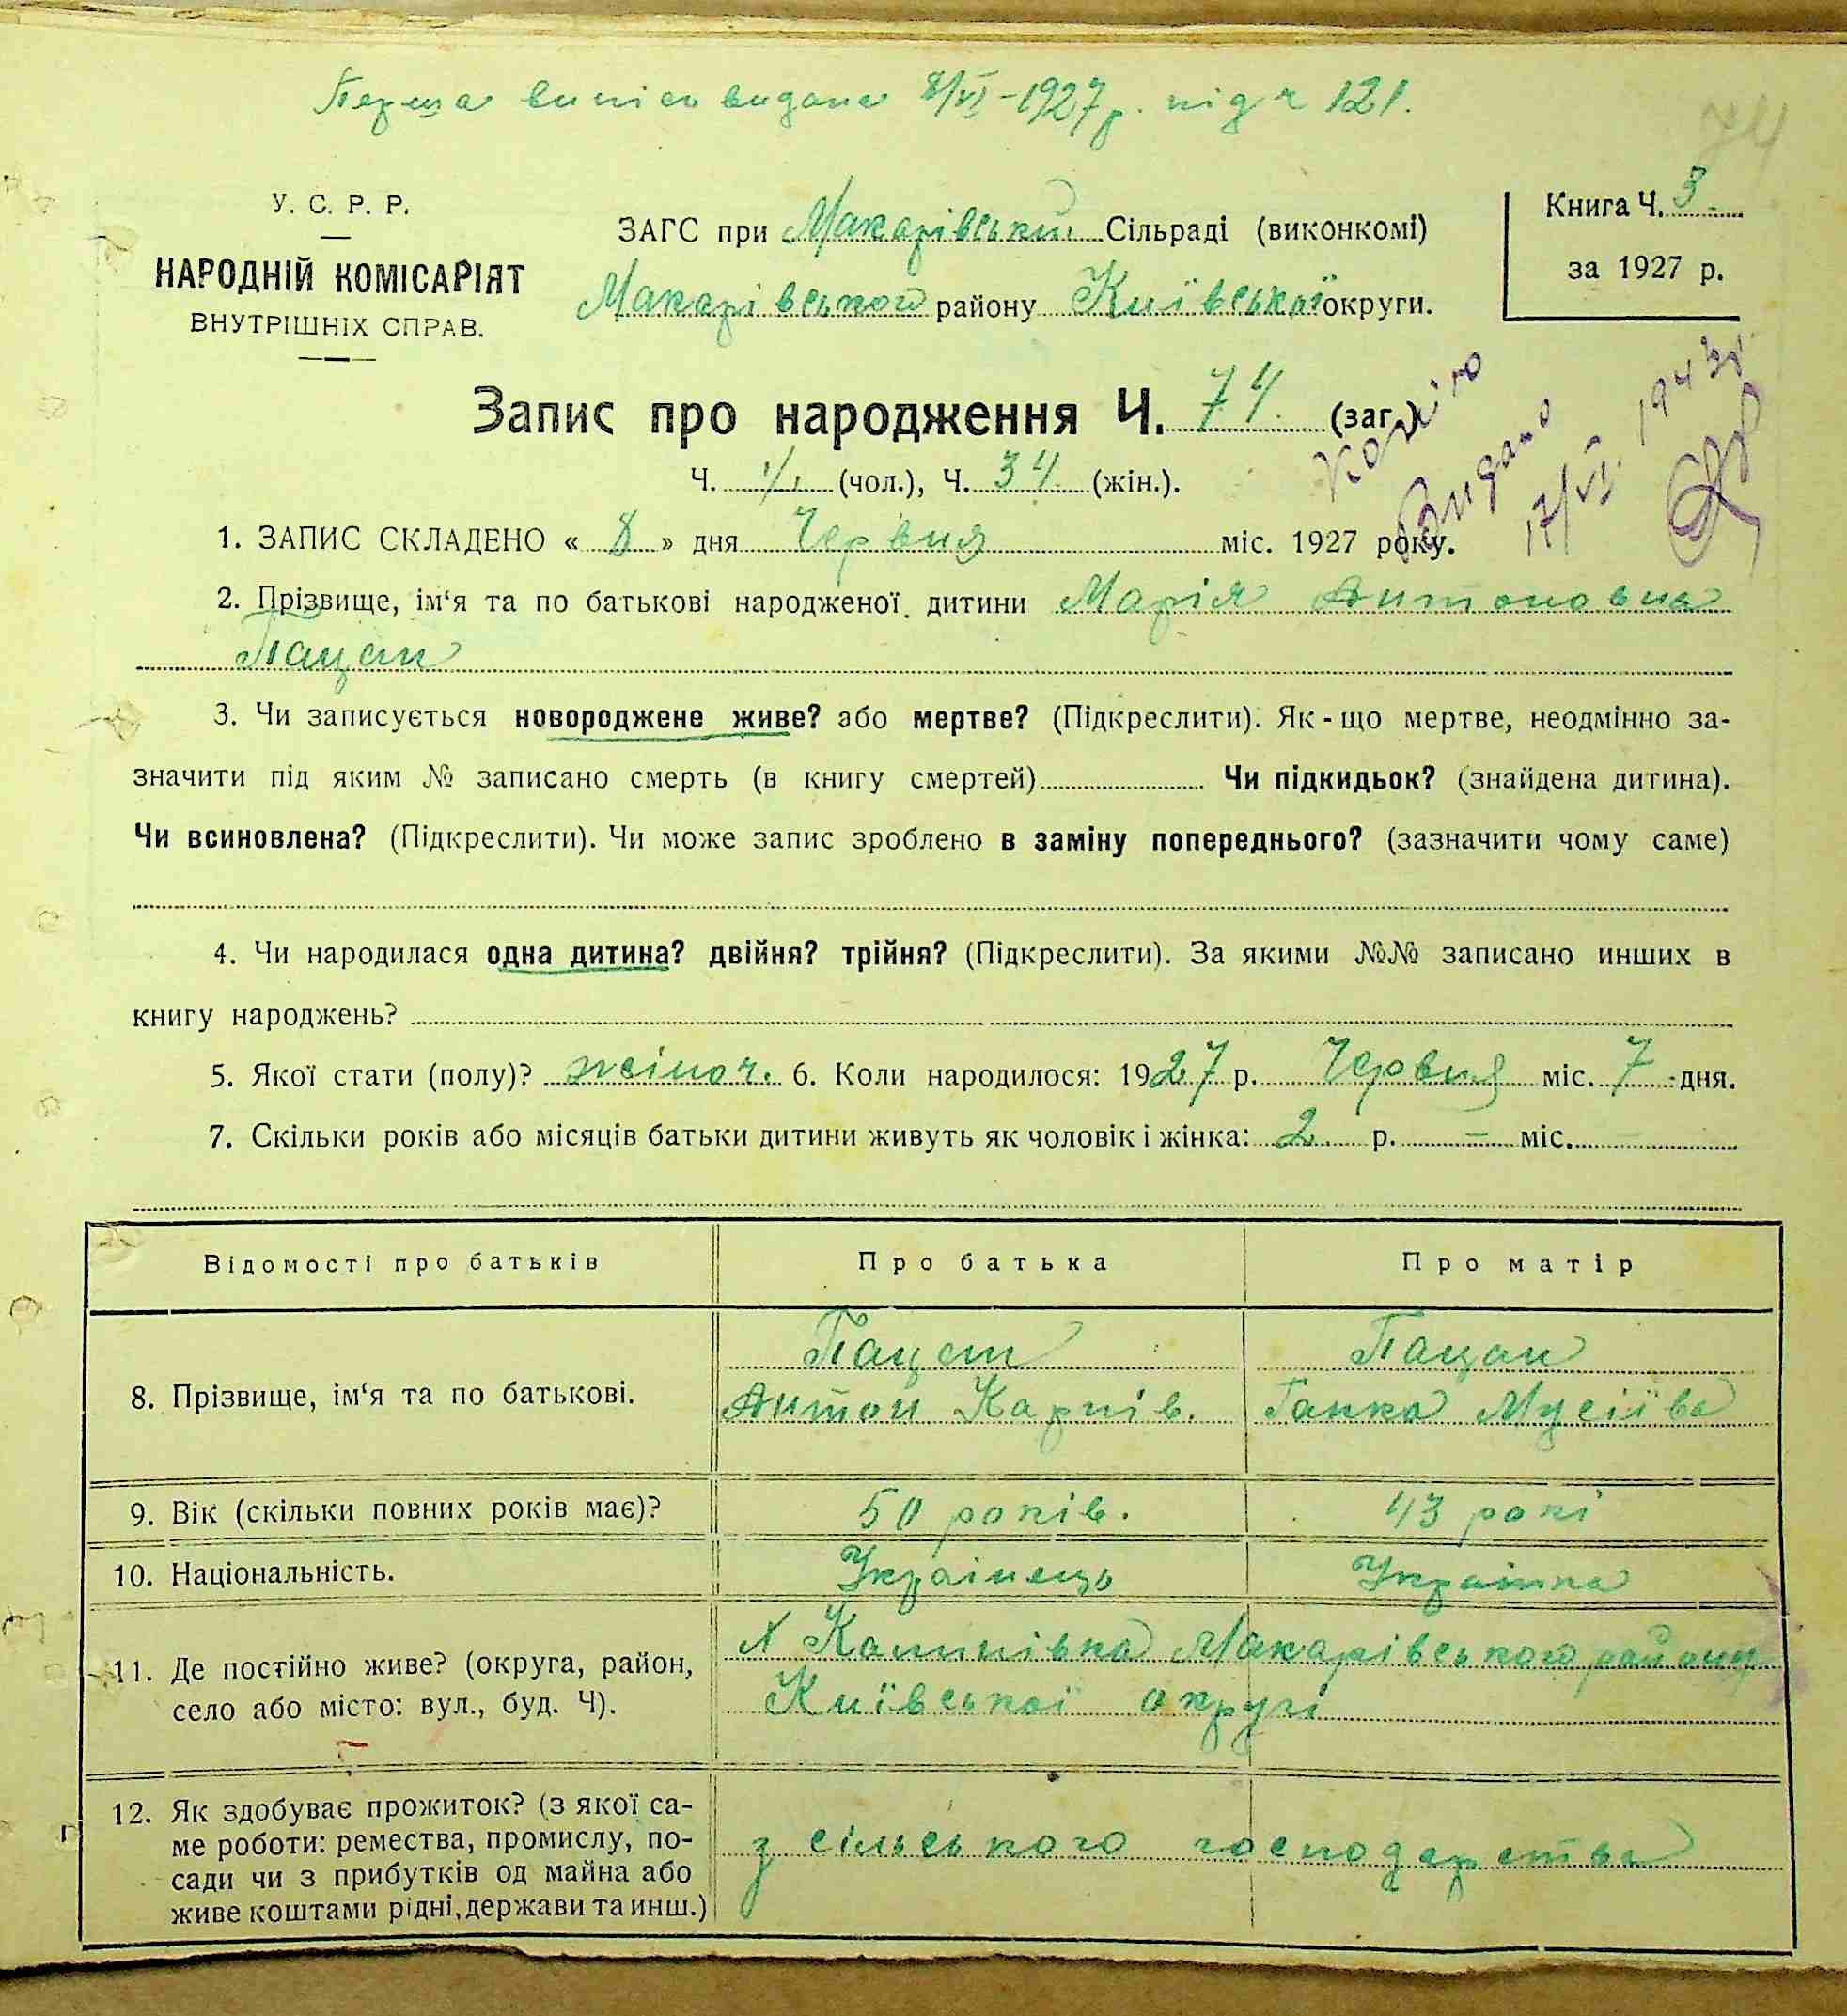 Перша випись видана 8/VI-1927 р. під ч 121.
74
У. С. Р. Р.
НАРОДНІЙ КОМІСАРІЯТ
ВНУТРІШНІХ СПРАВ.
ЗАГС при Макарівський Сільраді (виконкомі)
Макарівського району Київської округи.
Книга Ч. 3
за 1927 р.
Запис про народження Ч. 74 (заг.)
Ч. (чол.), Ч. 34 (жін.).
Копію
Видано
17/VI. 1943р.
1. ЗАПИС СКЛАДЕНО « 8 » дня Червня міс. 1927 року.
2. Прізвище, ім‘я та по батькові народженої дитини Марія Антоновна
Пацан
3. Чи записується новороджене живе? або мертве? (Підкреслити). Як-що мертве, неодмінно за-
значити під яким № записано смерть (в книгу смертей) Чи підкидьок? (знайдена дитина).
Чи всиновлена? (Підкреслити). Чи може запис зроблено в заміну попереднього? (зазначити чому саме)
4. Чи народилася одна дитина? двійня? трійня? (Підкреслити). За якими №№ записано инших в
книгу народжень?
5. Якої стати (полу)? жіноч. 6. Коли народилося: 1927 р. Червня міс. 7 дня.
7. Скільки років або місяців батьки дитини живуть як чоловік і жінка: 2 р. – міс.
Відомості про батьків Про батька Про матір
8. Прізвище, ім‘я та по батькові.
Пацан
Антон Карпів.
Пацан
Ганка Мусіїва
9. Вік (скільки повних років має)? 50 років. 43 рокі
10. Національність. Українець Українка
11. Де постійно живе? (округа, район,
село або місто: вул., буд. Ч).
х Калинівка Макарівського району
Київської округі
12. Як здобуває прожиток? (з якої са-
ме роботи: ремества, промислу, по-
сади чи з прибутків од майна або
живе коштами рідні, держави та инш.)
з сільського господарства